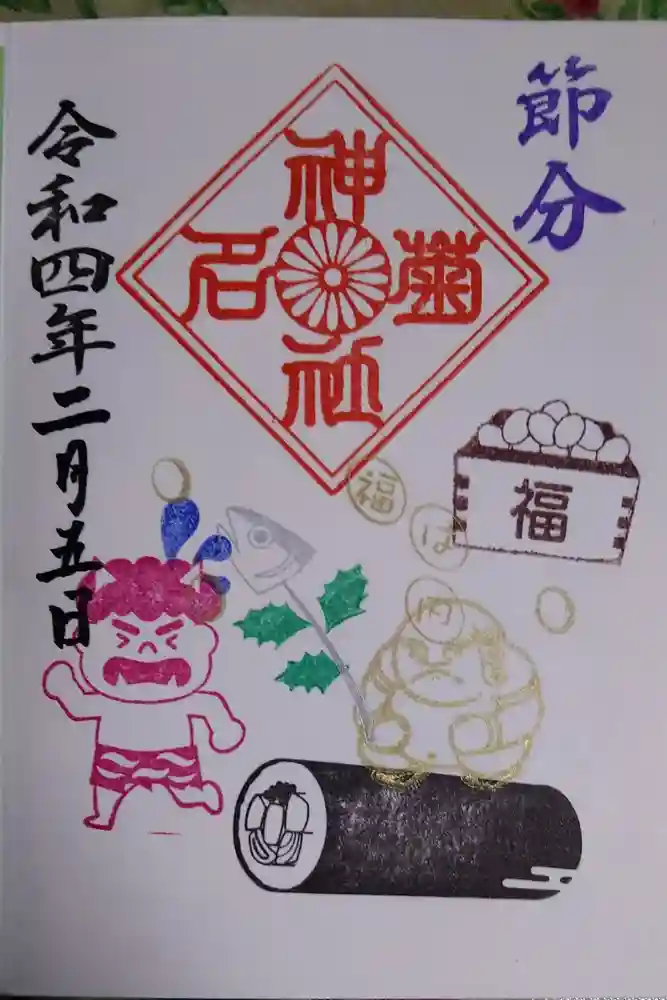 節分
菊名神社
福
福
は
内
令和四年二月五日